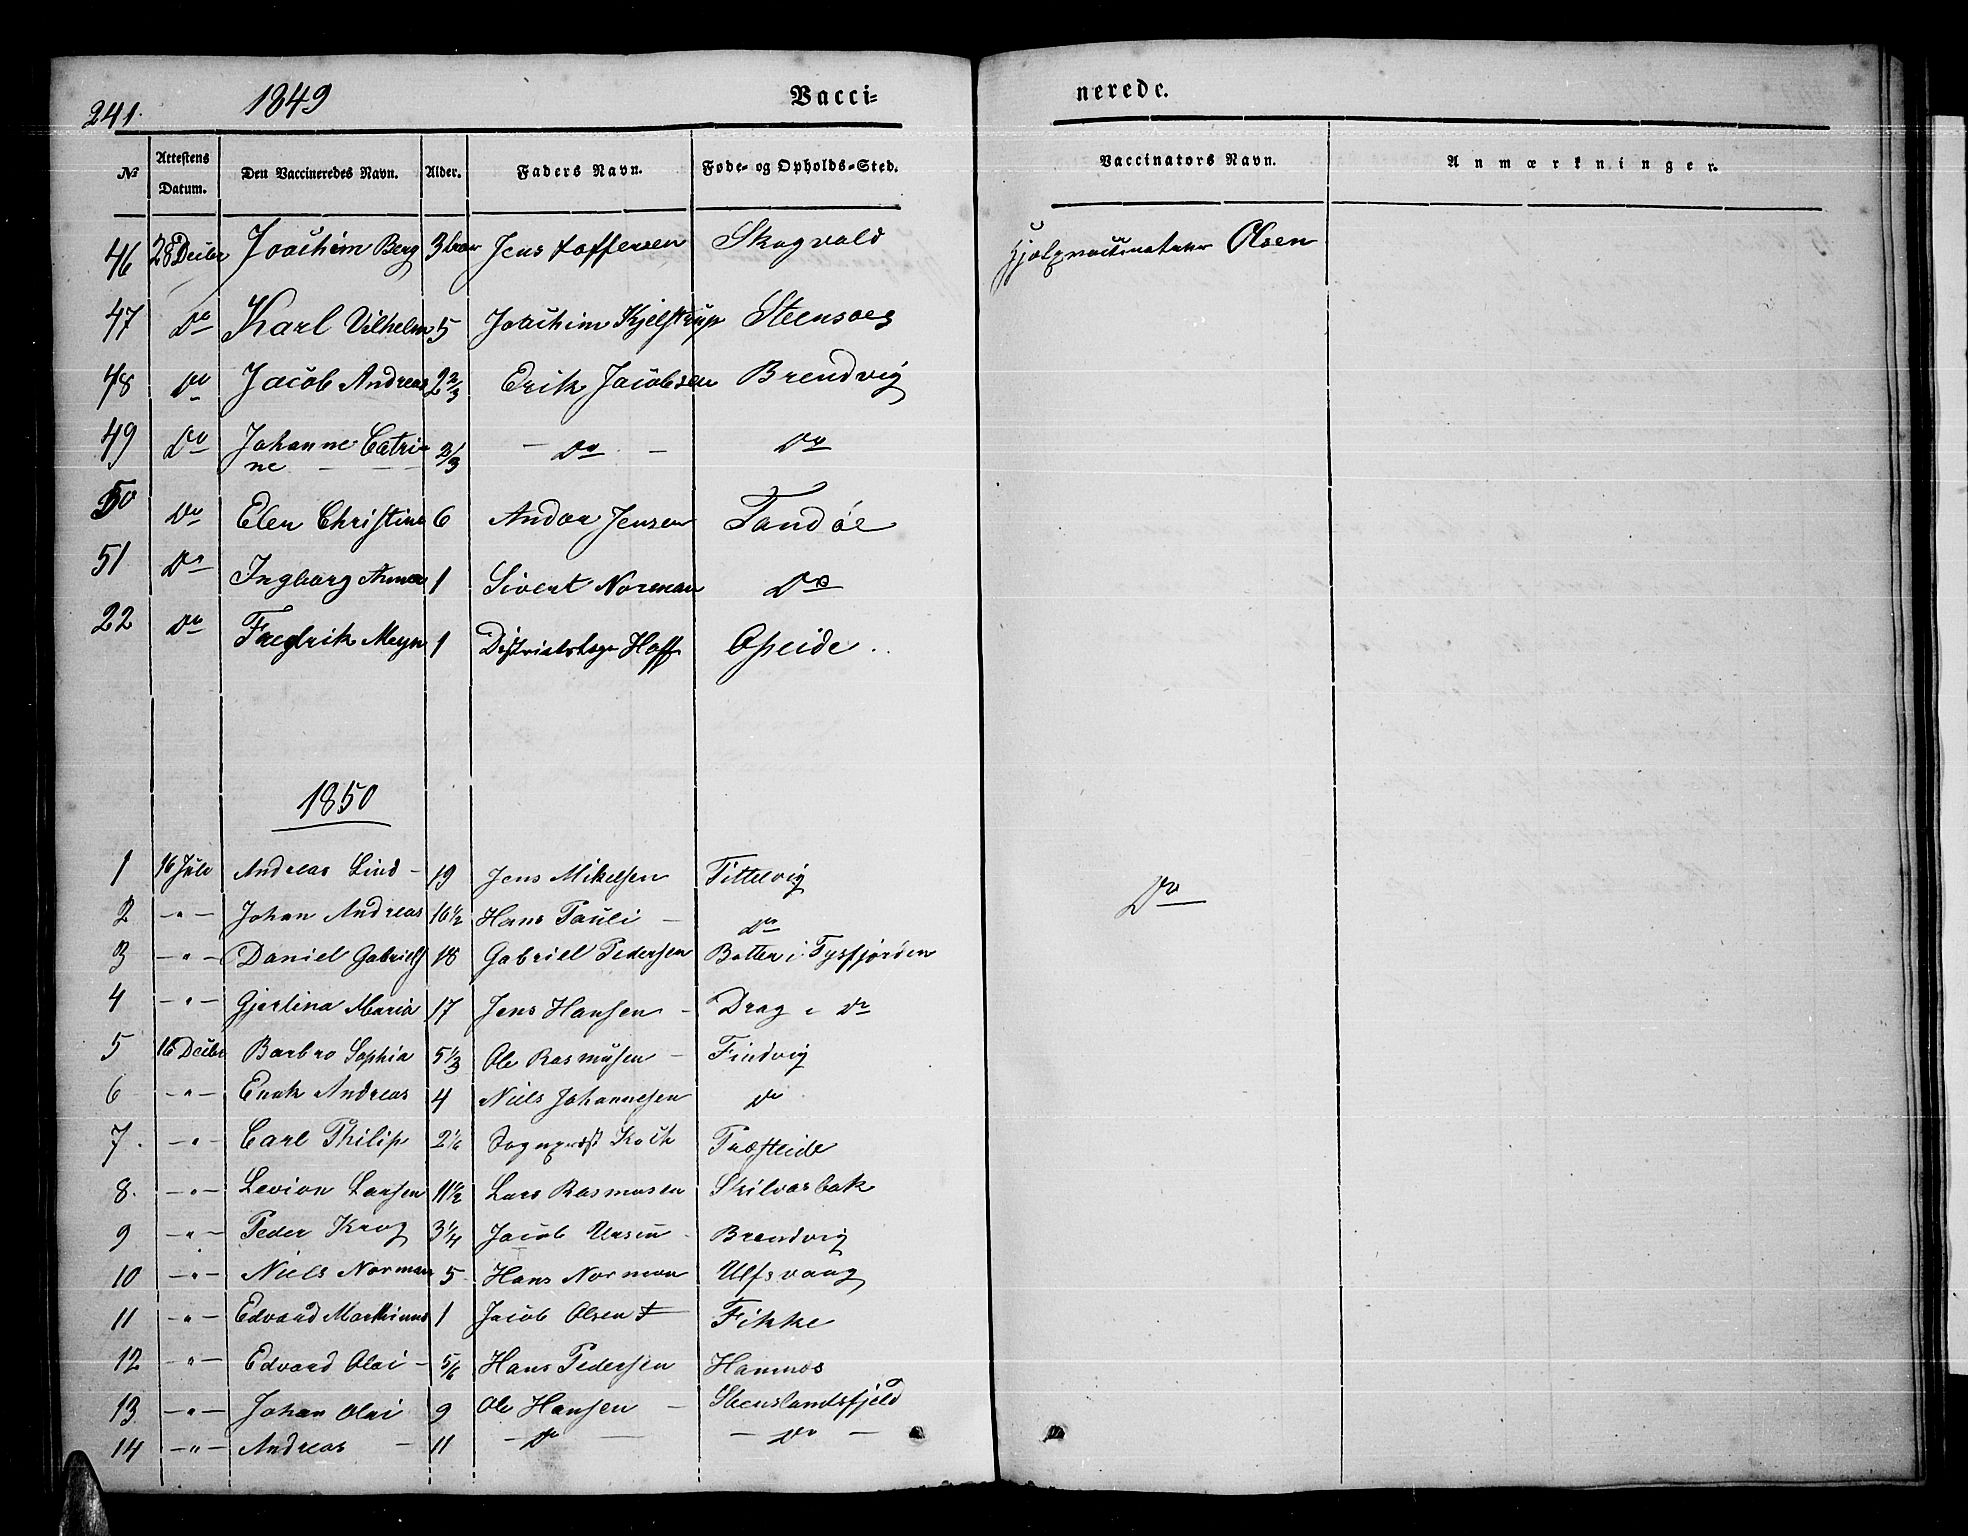 241. 1849 Vacci= nerede.
№ Attestens Datum. Den Vaccineredes Navn. Alder. Faders Navn. Føde- og Opholds-Sted. Vaccinators Navn. Anmærkninger.
46 28 Decbr Joachim Berg 3 Jens toffersen Skogvold Hjelpvaccinateur Olsen
47 Do Karl Vilhelm 5 Joachim Kjelstrup Steensoeg
48 Do Jacob Andreas 2 2/3 Erik Jacobsen Brendvig
49 Do Johanne Catri-
ne 2/3 — Do — Do
50 Do Elen Christine 6 Andor Jensen Tandøe
51 Do Ingborg Anna 1 Sivert Norman Do
22 Do Fredrik Meyn 1 Districtslæge Hoff Opeide
1850
1 16 Juli Andreas Lind - 19 Jens Mikelsen Tittelvig Do
2 -"- Johan Andreas 16 1/2 Hans Pauli - Do
3 -"- Daniel Gabriels 18 Gabriel Pedersen Botten i Tysfjorden
4 -"- Gjertina Maria 17 Jens Hansen - Drag i Do
5 16 Decbr Barbro Sophia 5 1/3 Ole Rasmusen - Findvig
6 -"- Enok Andreas 4 Niels Johannesen Do
7 -"- Carl Philip 2 1/6 Sognepræst Koch Præsteide
8 -"- Levion Larsen 11 1/2 Lars Rasmusen Skilvasbak
9 -"- Peder Krog 3 1/4 Jacob Ursin - Brendvig
10 -"- Niels Norman 5 Hans Norman Ulfsvaag
11 -"- Edvard Marthinus 1 Jacob Olsen Fikke
12 -"- Edvard Olai - 5/6 Hans Pedersen Hamnes
13 -"- Johan Olai 9 Ole Hansen - Steenslandsfjeld
14 -"- Andreas - 11 - Do - - Do -